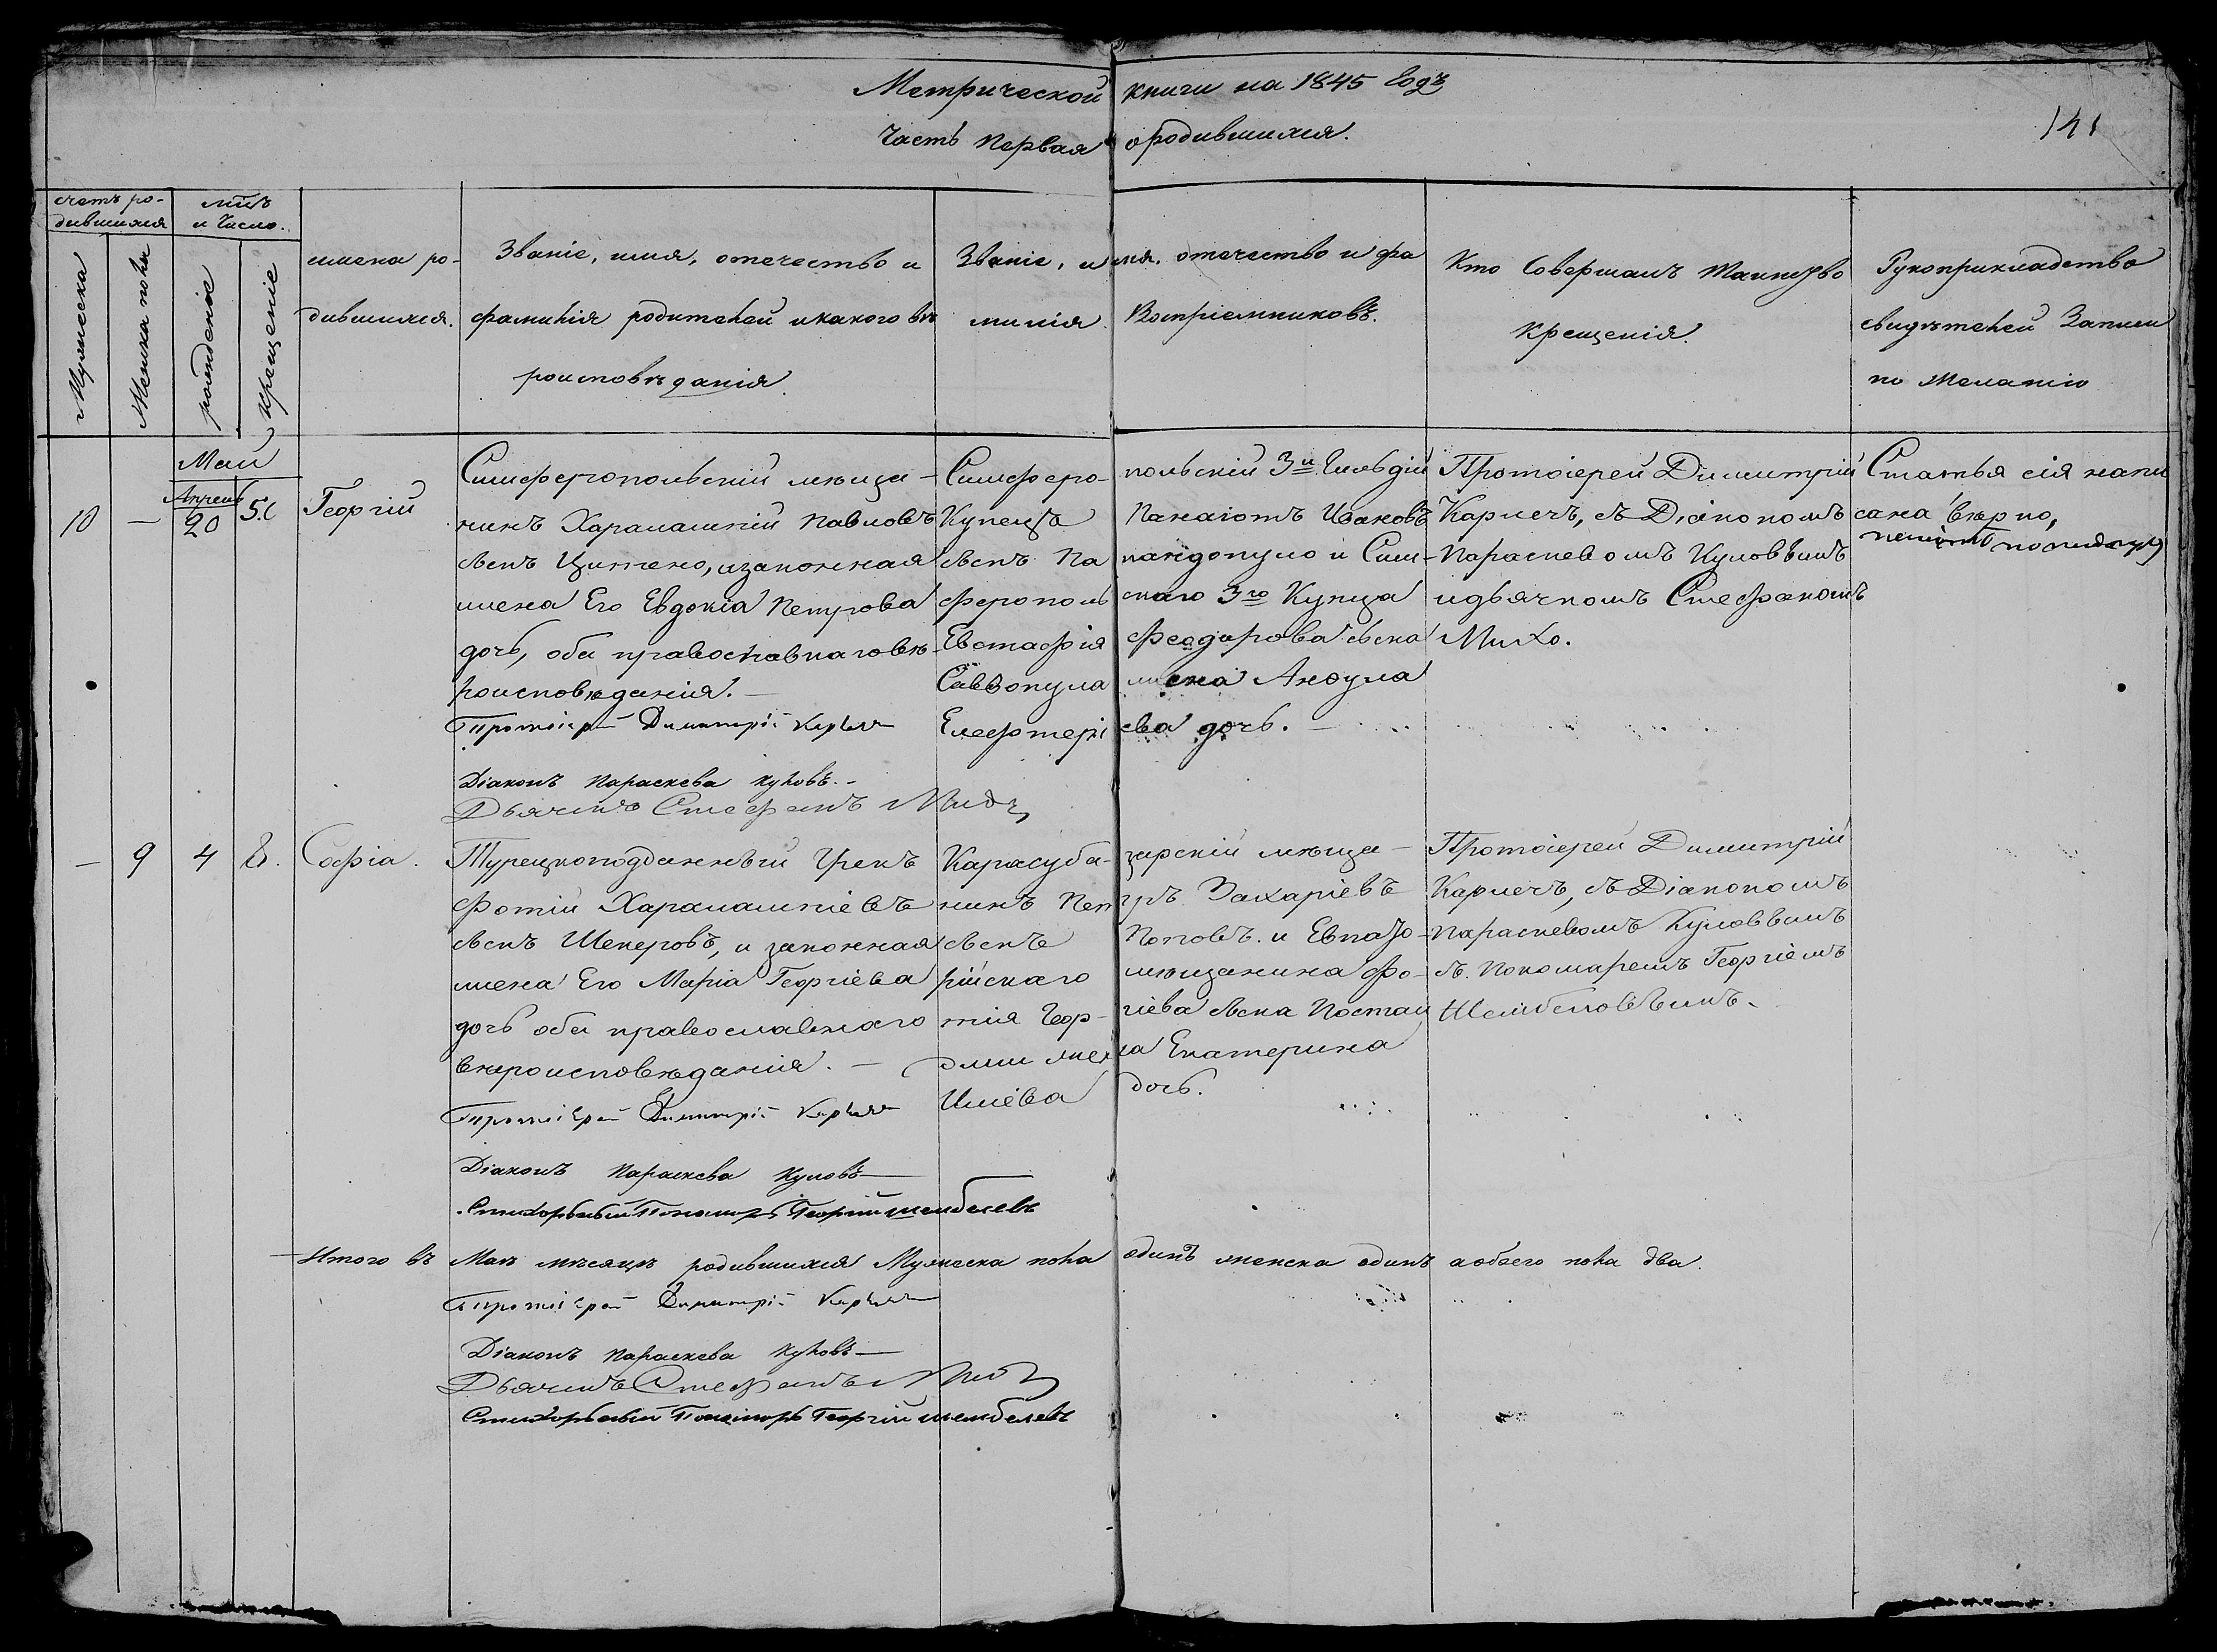 Метрической книги на 1845 годъ
Часть Первая о родившихся.
141
счетъ ро-
дившихся
мцъ
и Число.
Мужеска
Женска пола
рожденіе
крещеніе
имена ро-
дившихся.
Званіе, имя, отчество и
фамилія родителей и какого вѣ
роисповѣданія.
Званіе, имя, отечество и фа
милія Воспріемниковъ.
Кто Совершалъ Таинство
Крещенія.
Рукоприкладство
свидѣтелей Записи
по желанію
Май
10
—
Апрель
20
5.
Георгій
Симферопольскій мѣща-
нинъ Харалампій Павловъ
сынъ Цитено, и законная
жена Его Евдокіа Петрова
дочь, оба православнаго вѣ-
роисповѣданія. —
Протоіерей Димитрій Карлеч
Діаконъ Параскева Куловъ. -
Дьячекъ Стефанъ
Симферо-польскій 3й Гильдіи
Купецъ Панаіотъ Іваковъ
сынъ Папандопуло и Сим-
феропольскаго 3го Купца
Евстафія Феодорова сына
Саввопула жена Анѳула
Елефтеріева дочь. —
Протоіерей Димитрій
Карлечъ, съ Діакономъ
Параскевомъ Куловымъ
и дьячкомъ Стефаномъ
Михо.
Статья сія напи
сана вѣрно,
—
9
4
8.
Софіа.
Турецкоподданный Грекъ
Фотій Харалампіевъ
сынъ Шекеровъ, и законная
жена Его Маріа Георгіева
дочь оба православнаго
вѣроисповѣданія. —
Протоіерей Димитрій Карлеч
Діаконъ Параскева Куловъ —
Стихарный Пономарь Георгій шембелевъ
Карасубазарскій мѣща-
нинъ Петръ Захаріевъ
сынъ Поповъ. и Евпато-
рійскаго мѣщанина Фо-
тія Георгіева сына Постан
жена Екатерина
Иліева дочь.
Протоіерей Димитрій
Карлечъ, съ Діакономъ
Параскевомъ Куловымъ
съ. Пономаремъ Георгіемъ
Шембеловымъ.
Итого въ Маѣ мѣсяцѣ родившихся Мужеска пола одинъ женска одинъ а обоего пола два.
Протоіерей Димитрій Карлеч
Діаконъ Параскева Куловъ —
Дьячекъ Стефанъ
Стихарный Пономарь Георгій шембелевъ